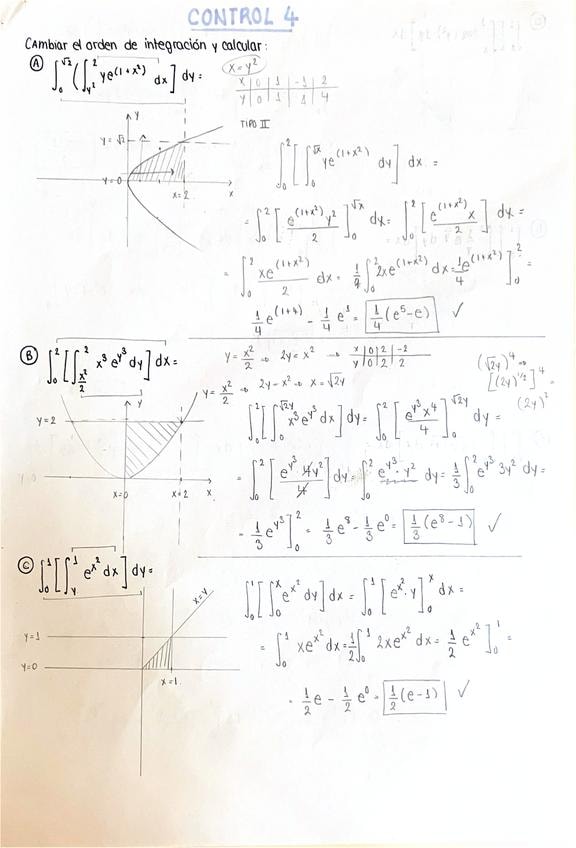 CONTROL 4
Cambiar el orden de integración y calcular:
Ⓐ ∫₀^√2 (∫_{y²}^2 ye^(1+x²) dx] dy =
x = y²
x | 0 | 1 | -1 | 2
y | 0 | 1 | 1 | 4
TIPO II
y
y = √2
y=0
x=2
x
∫₀² [∫₀^√x ye^(1+x²) dy] dx =
= ∫₀² [e^(1+x²) y² / 2]₀^√x dx = ∫₀² [e^(1+x²) x / 2] dx =
= ∫₀² xe^(1+x²) / 2 dx = 1/4 ∫₀² 2xe^(1+x²) dx = 1/4 e^(1+x²)]₀² =
1/4 e^(1+4) - 1/4 e¹ = 1/4 (e⁵ - e) ✓
Ⓑ ∫₀² [∫_{x²/2}^2 x³ e^{y³} dy] dx =
y = x²/2 → 2y = x² →
x | 0 | 2 | -2
y | 0 | 2 | 2
y = x²/2 → 2y = x² → x = √2y
(√2y)⁴ →
[(2y)^{1/2}]⁴ =
(2y)²
y
y = 2
x=0
x=2
x
∫₀² [∫₀^√2y x³ e^{y³} dx] dy = ∫₀² [e^{y³} x⁴ / 4]₀^√2y dy =
= ∫₀² [e^{y³} 4y² / 4] dy = ∫₀² e^{y³} · y² dy = 1/3 ∫₀² e^{y³} 3y² dy =
= 1/3 e^{y³}]₀² = 1/3 e⁸ - 1/3 e⁰ = 1/3 (e⁸ - 1) ✓
Ⓒ ∫₀¹ [∫_y^1 e^{x²} dx] dy =
x=y
y=1
y=0
x=1
∫₀¹ [∫₀^x e^{x²} dy] dx = ∫₀¹ [e^{x²} · y]₀^x dx =
= ∫₀¹ xe^{x²} dx = 1/2 ∫₀¹ 2xe^{x²} dx = 1/2 e^{x²}]₀¹ =
= 1/2 e - 1/2 e⁰ = 1/2 (e - 1) ✓